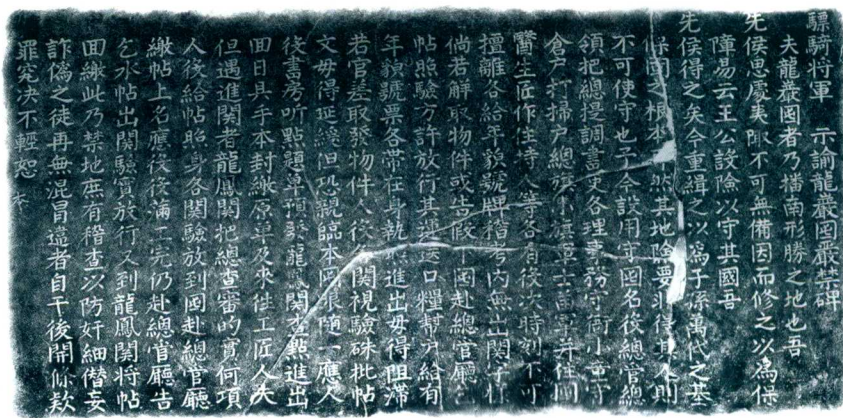 驃騎將軍 示諭龍巖囤嚴禁碑
夫龍巖囤者乃播南形勝之地也吾
先侯思處夷陬不可無備因而修之以為保
障易云王公設險以守其國吾
先侯得之矣今重緝之以為子孫萬代之基
保囤之根本 然其地險要 得其人則
不可使守也予今設用軍囤名役總管總
領把總提調書吏各理事務守衙小童守
倉戶打掃戶總旗小旗軍士苗軍并住囤
醫生匠作住持人等各有役次時刻不可
擅離各給年貌號牌稽考內無出關牙
倘若解取物件或告假下囤赴總管廳
帖照驗方許放行其遞送口糧幫戶給有
年貌號票各帶在身執 進出毋得阻滯
若官差取發物件人役各關視驗硃批帖
文毋得延緩但恐親臨本囤跟隨一應人
役書房听點題單預發龍鳳關查點進出
回日具手本封繳原單及來往工匠人夫
但遇進關者龍鳳關把總查審的實何項
人役給帖照身各關驗放到囤赴總管廳
繳帖上名應役役滿工完仍赴總管廳告
乞水帖出關驗實放行又到龍鳳關將帖
回繳此乃禁地庶有稽查以防奸細僭妄
詐偽之徒再無混冒違者自干後開條款
罪究决不輕恕